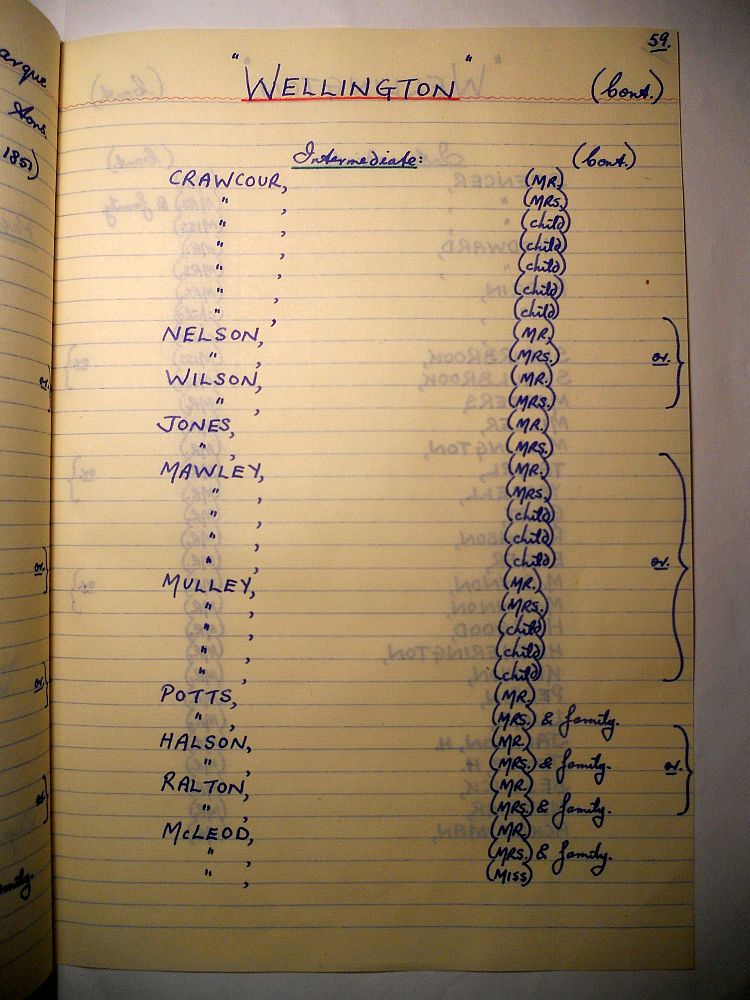 59.
"WELLINGTON" (Cont.)
Intermediate: (Cont.)
CRAWCOUR, (MR.)
" , (MRS.)
" , (child)
" , (child)
" , (child)
" , (child)
" , (child)
NELSON, (MR.)
" , (MRS.) or.
WILSON, (MR.)
" , (MRS.)
JONES, (MR.)
" , (MRS.)
MAWLEY, (MR.)
" , (MRS.)
" , (child)
" , (child)
" , (child) or.
MULLEY, (MR.)
" , (MRS.)
" , (child)
" , (child)
" , (child)
POTTS, (MR.)
" , (MRS.) & family.
HALSON, (MR.)
" , (MRS.) & family. or.
RALTON, (MR.)
" , (MRS.) & family.
McLEOD, (MR.)
" , (MRS.) & family.
" , (MISS)
arque
Sons.
1851)
or.
or.
or.
or.